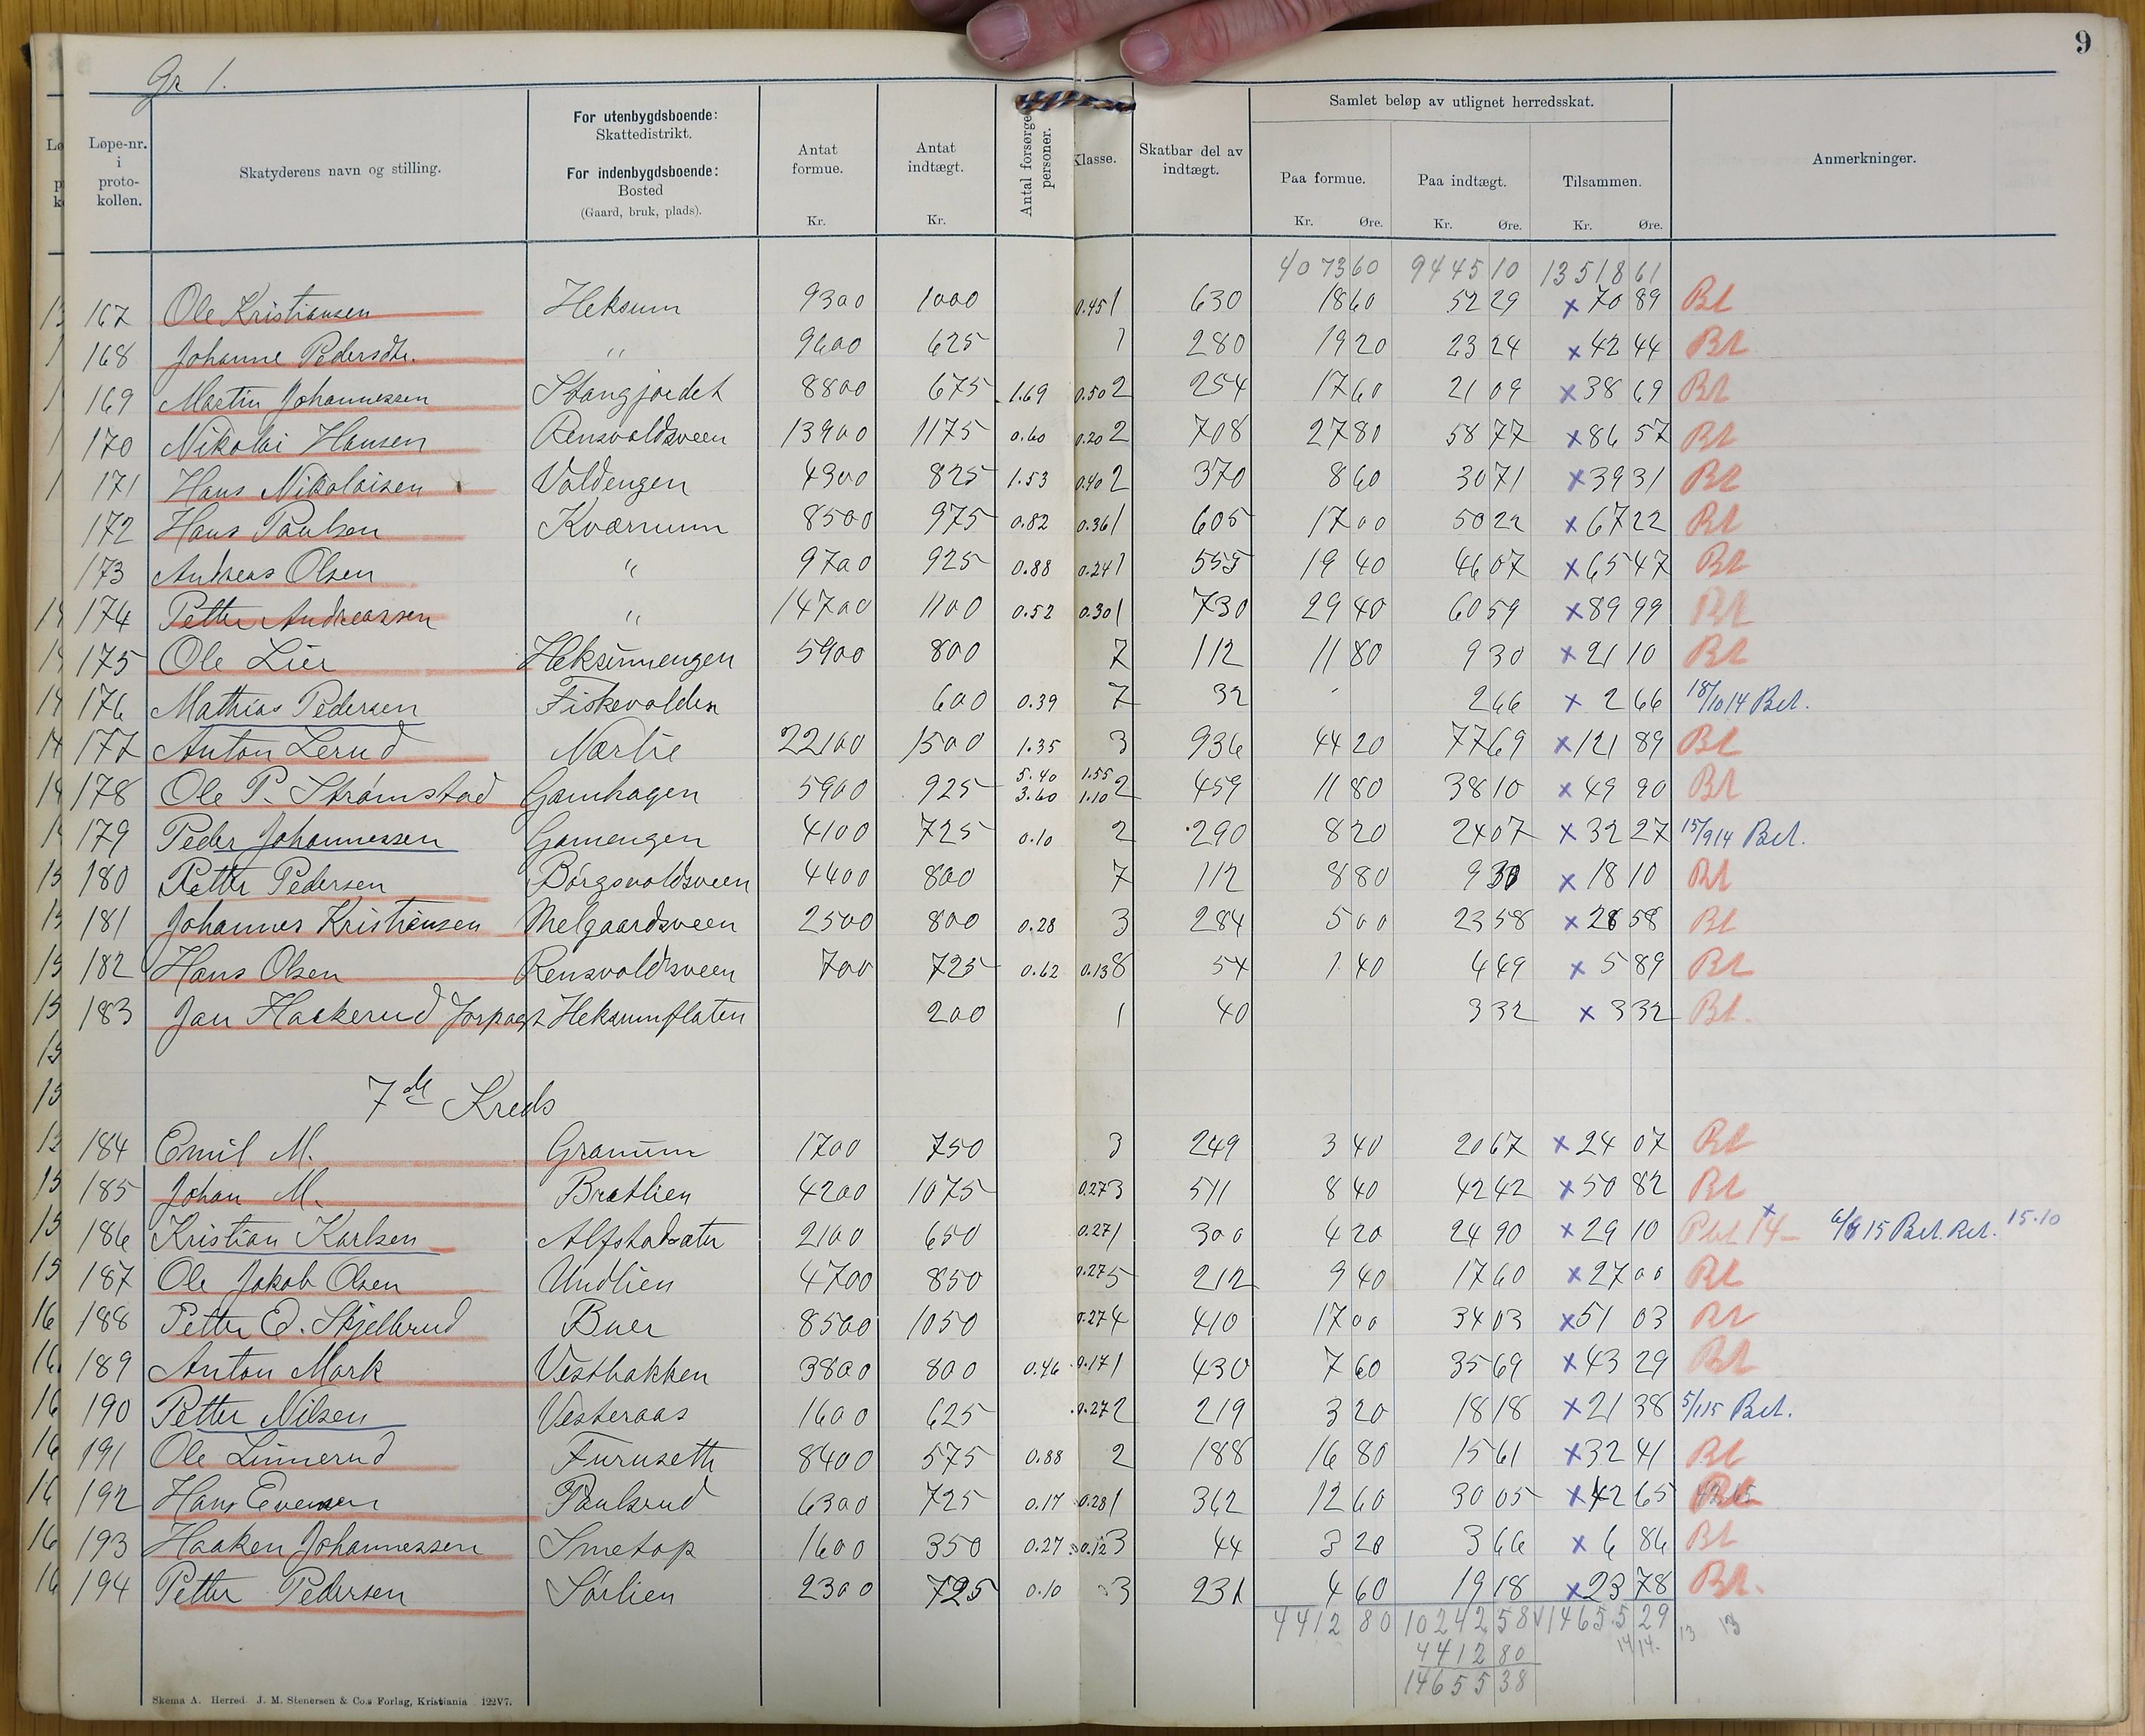 9
Gr 1.
Løpe-nr. i proto-kollen. Skatyderens navn og stilling. For utenbygdsboende: Skattedistrikt. For indenbygdsboende: Bosted (Gaard, bruk, plads). Antat formue. Kr. Antat indtægt. Kr. Antal forsørge personer. Klasse. Skatbar del av indtægt. Samlet beløp av utlignet herredsskat. Paa formue. Kr. Øre. Paa indtægt. Kr. Øre. Tilsammen. Kr. Øre. Anmerkninger.
4073 60 9445 10 13518 61
167 Ole Kristiansen Heksum 9300 1000 0.45 1 630 18 60 52 29 x 70 89 Bt
168 Johanne Pedersdtr. " 9600 625 1 280 19 20 23 24 x 42 44 Bt
169 Martin Johannessen Stangjordet 8800 675 1.69 0.50 2 254 17 60 21 09 x 38 69 Bt
170 Nikolai Hansen Rensvoldsveen 13900 1175 0.60 0.20 2 708 27 80 58 77 x 86 57 Bt
171 Hans Nikolaisen Voldengen 4300 825 1.53 0.40 2 370 8 60 30 71 x 39 31 Bt
172 Hans Paulsen Kværnum 8500 975 0.82 0.36 1 605 17 00 50 22 x 67 22 Bt
173 Andreas Olsen " 9700 925 0.88 0.24 1 555 19 40 46 07 x 65 47 Bt
174 Petter Andreassen " 14700 1100 0.52 0.30 1 730 29 40 60 59 x 89 99 Bt
175 Ole Lier Heksumengen 5900 800 7 112 11 80 9 30 x 21 10 Bt
176 Mathias Pedersen Fiskevolden 600 0.39 7 32 2 66 x 2 66 18/10 14 Bet.
177 Anton Lerud Nørlie 22100 1500 1.35 3 936 44 20 77 69 x 121 89 Bt
178 Ole P. Strømstad Gamhagen 5900 925 5.40 3.60 1.55 1.10 2 459 11 80 38 10 x 49 90 Bt
179 Peder Johannessen Gamengen 4100 725 0.10 2 290 8 20 24 07 x 32 27 15/9 14 Bet.
180 Petter Pedersen Børgsvoldsveen 4400 800 7 112 8 80 9 30 x 18 10 Bt
181 Johannes Kristiansen Melgaardsveen 2500 800 0.28 3 284 5 00 23 58 x 28 58 Bt
182 Hans Olsen Rensvoldsveen 700 725 0.62 0.13 8 54 1 40 4 49 x 5 89 Bt
183 Jan Haakerud Forpagt Heksumflaten 200 1 40 3 32 x 3 32 Bt.
7de Kreds
184 Emil M. Granum 1700 750 3 249 3 40 20 67 x 24 07 Bt
185 Johan M. Bratlien 4200 1075 0.27 3 511 8 40 42 42 x 50 82 Bt
186 Kristian Karlsen Alfstadsæter 2100 650 0.27 1 300 4 20 24 90 x 29 10 Pbet 14- x 6/8 15 Bet. Ret. 15.10
187 Ole Jakob Olsen Undlien 4700 850 0.27 5 212 9 40 17 60 x 27 00 Bt
188 Petter E. Skjelbrud Buer 8500 1050 0.27 4 410 17 00 34 03 x 51 03 Bt
189 Anton Mork Vestbakken 3800 800 0.46 0.17 1 430 7 60 35 69 x 43 29 Bt
190 Petter Nilsen Vesteraas 1600 625 0.27 2 219 3 20 18 18 x 21 38 5/1 15 Bet.
191 Ole Linnerud Furuseth 8400 575 0.88 2 188 16 80 15 61 x 32 41 Bt
192 Hans Evensen Paulsrud 6300 725 0.17 0.28 1 362 12 60 30 05 x 42 65 Bt
193 Haaken Johannessen Smetop 1600 350 0.27 0.12 3 44 3 20 3 66 x 6 86 Bt
194 Petter Pedersen Sørlien 2300 725 0.10 3 231 4 60 19 18 x 23 78 Bt.
4412 80 10242 58 14655 29 13 13
4412 80 14 14.
14655 38
Skema A. Herred. J. M. Stenersen & Co.s Forlag, Kristiania 122V7.